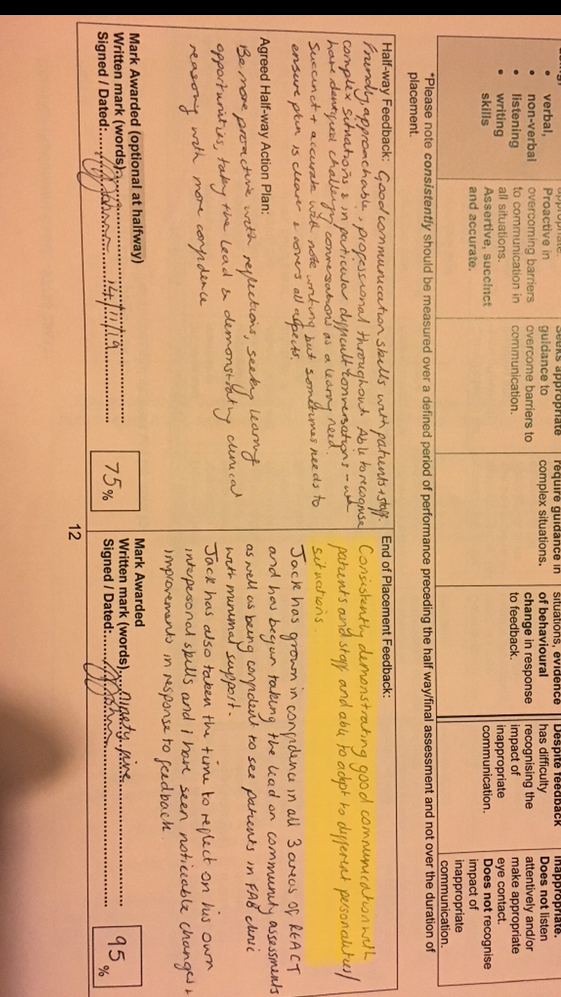 verbal,
non-verbal
listening
writing
skills
appropriate.
Proactive in
overcoming barriers
to communication in
all situations.
Assertive, succinct
and accurate.
Seeks appropriate
guidance to
overcome barriers to
communication.
require guidance in
complex situations.
situations, evidence
of behavioural
change in response
to feedback.
Despite feedback
has difficulty
recognising the
impact of
inappropriate
communication.
inappropriate.
Does not listen
attentively and/or
make appropriate
eye contact.
Does not recognise
impact of
inappropriate
communication.
*Please note consistently should be measured over a defined period of performance preceding the half way/final assessment and not over the duration of
placement.
Half-way Feedback: Good communication skills with patients + staff.
Friendly, approachable, professional throughout. Able to recognise
complex situations & in particular difficult conversations - we
have identified challenging conversations as a learning need.
Succinct + accurate with note writing but sometimes needs to
ensure plan is clear & covers all aspects.
Agreed Half-way Action Plan:
Be more proactive with reflections, seeking learning
opportunities, taking the lead & demonstrating clinical
reasoning with more confidence
Mark Awarded (optional at halfway)
Written mark (words)
Signed / Dated: 14/11/19
75%
End of Placement Feedback:
Consistently demonstrating good communication with
patients and staff and able to adapt to different personalities/
situations.
Jack has grown in confidence in all 3 areas of REACT
and has begun taking the lead on community assessments
as well as being confident to see patients in FAB clinic
with minimal support.
Jack has also taken the time to reflect on his own
interpersonal skills and I have seen noticeable changes +
improvements in response to feedback.
Mark Awarded
Written mark (words) Ninety five
Signed / Dated:
95%
12